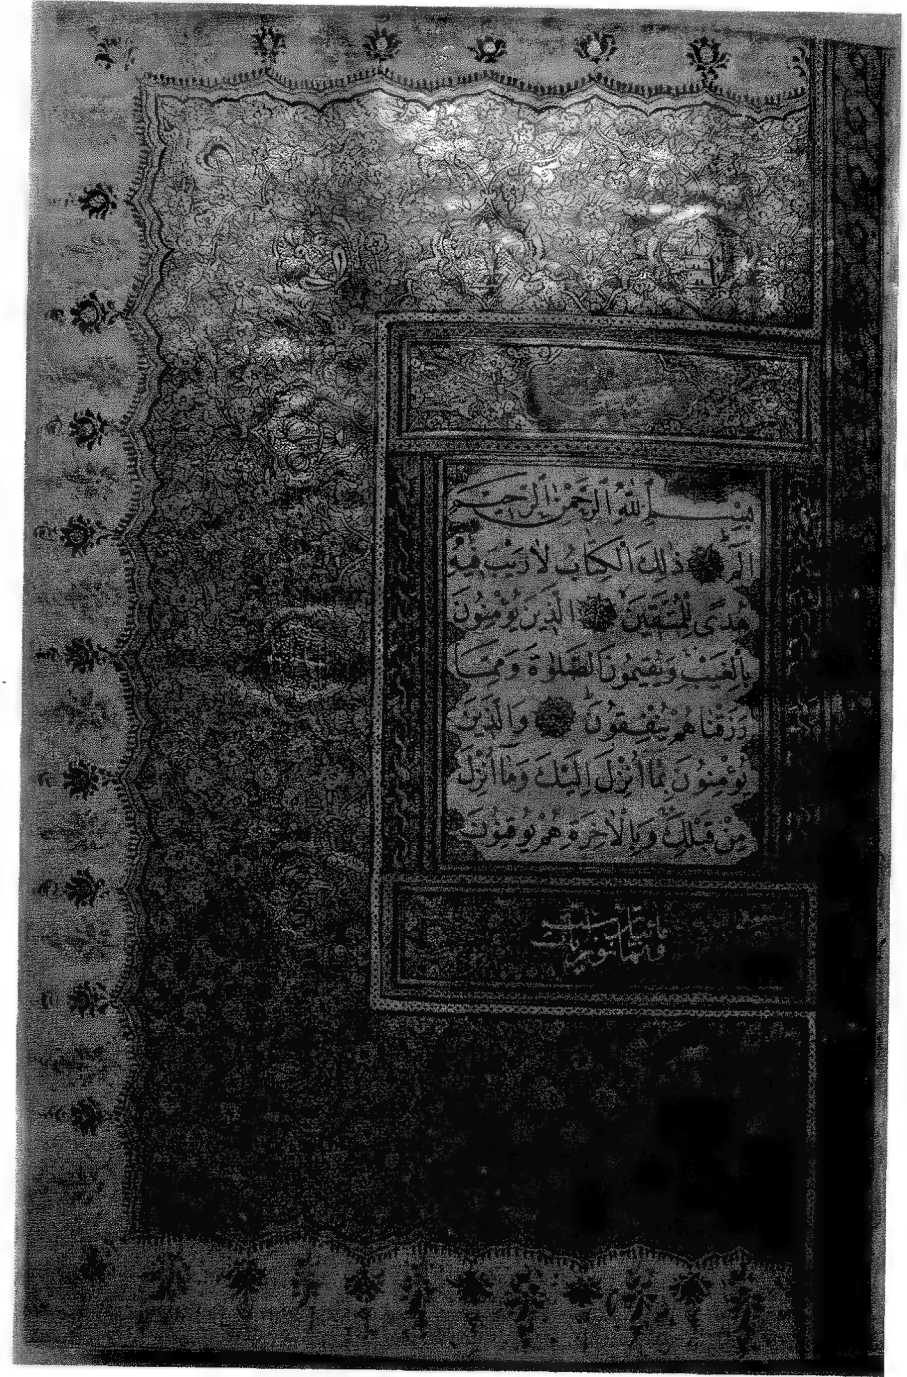 بِسْمِ اللهِ الرَّحْمٰنِ الرَّحِيْمِ
الٓمٓ ذٰلِكَ الْكِتَابُ لَا رَيْبَ فِيْهِ
هُدًى لِلْمُتَّقِيْنَ الَّذِيْنَ يُؤْمِنُوْنَ
بِالْغَيْبِ وَيُقِيْمُوْنَ الصَّلٰوةَ وَمِمَّا
رَزَقْنَاهُمْ يُنْفِقُوْنَ وَالَّذِيْنَ
يُؤْمِنُوْنَ بِمَا اُنْزِلَ اِلَيْكَ وَمَا اُنْزِلَ
مِنْ قَبْلِكَ وَبِالْاٰخِرَةِ هُمْ يُوْقِنُوْنَ